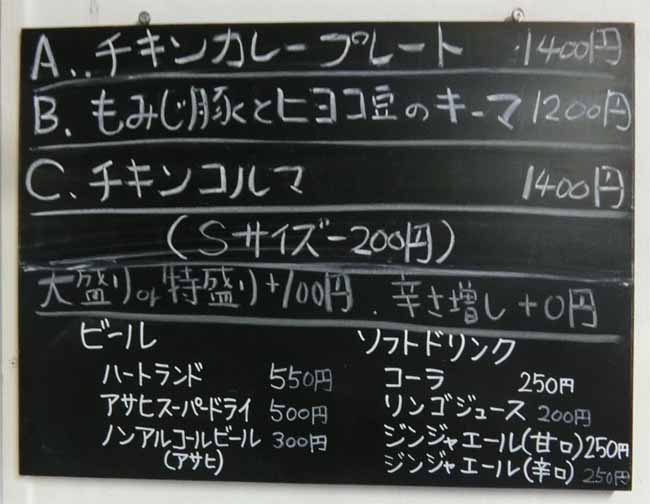 A..チキンカレープレート 1400円
B.もみじ豚とヒヨコ豆のキーマ 1200円
C.チキンコルマ 1400円
(Sサイズー200円)
大盛りor特盛り+100円.辛さ増し+0円
ビール
ハートランド 550円
アサヒスーパードライ 500円
ノンアルコールビール 300円
(アサヒ)
ソフトドリンク
コーラ 250円
リンゴジュース 200円
ジンジャエール(甘口) 250円
ジンジャエール(辛口) 250円